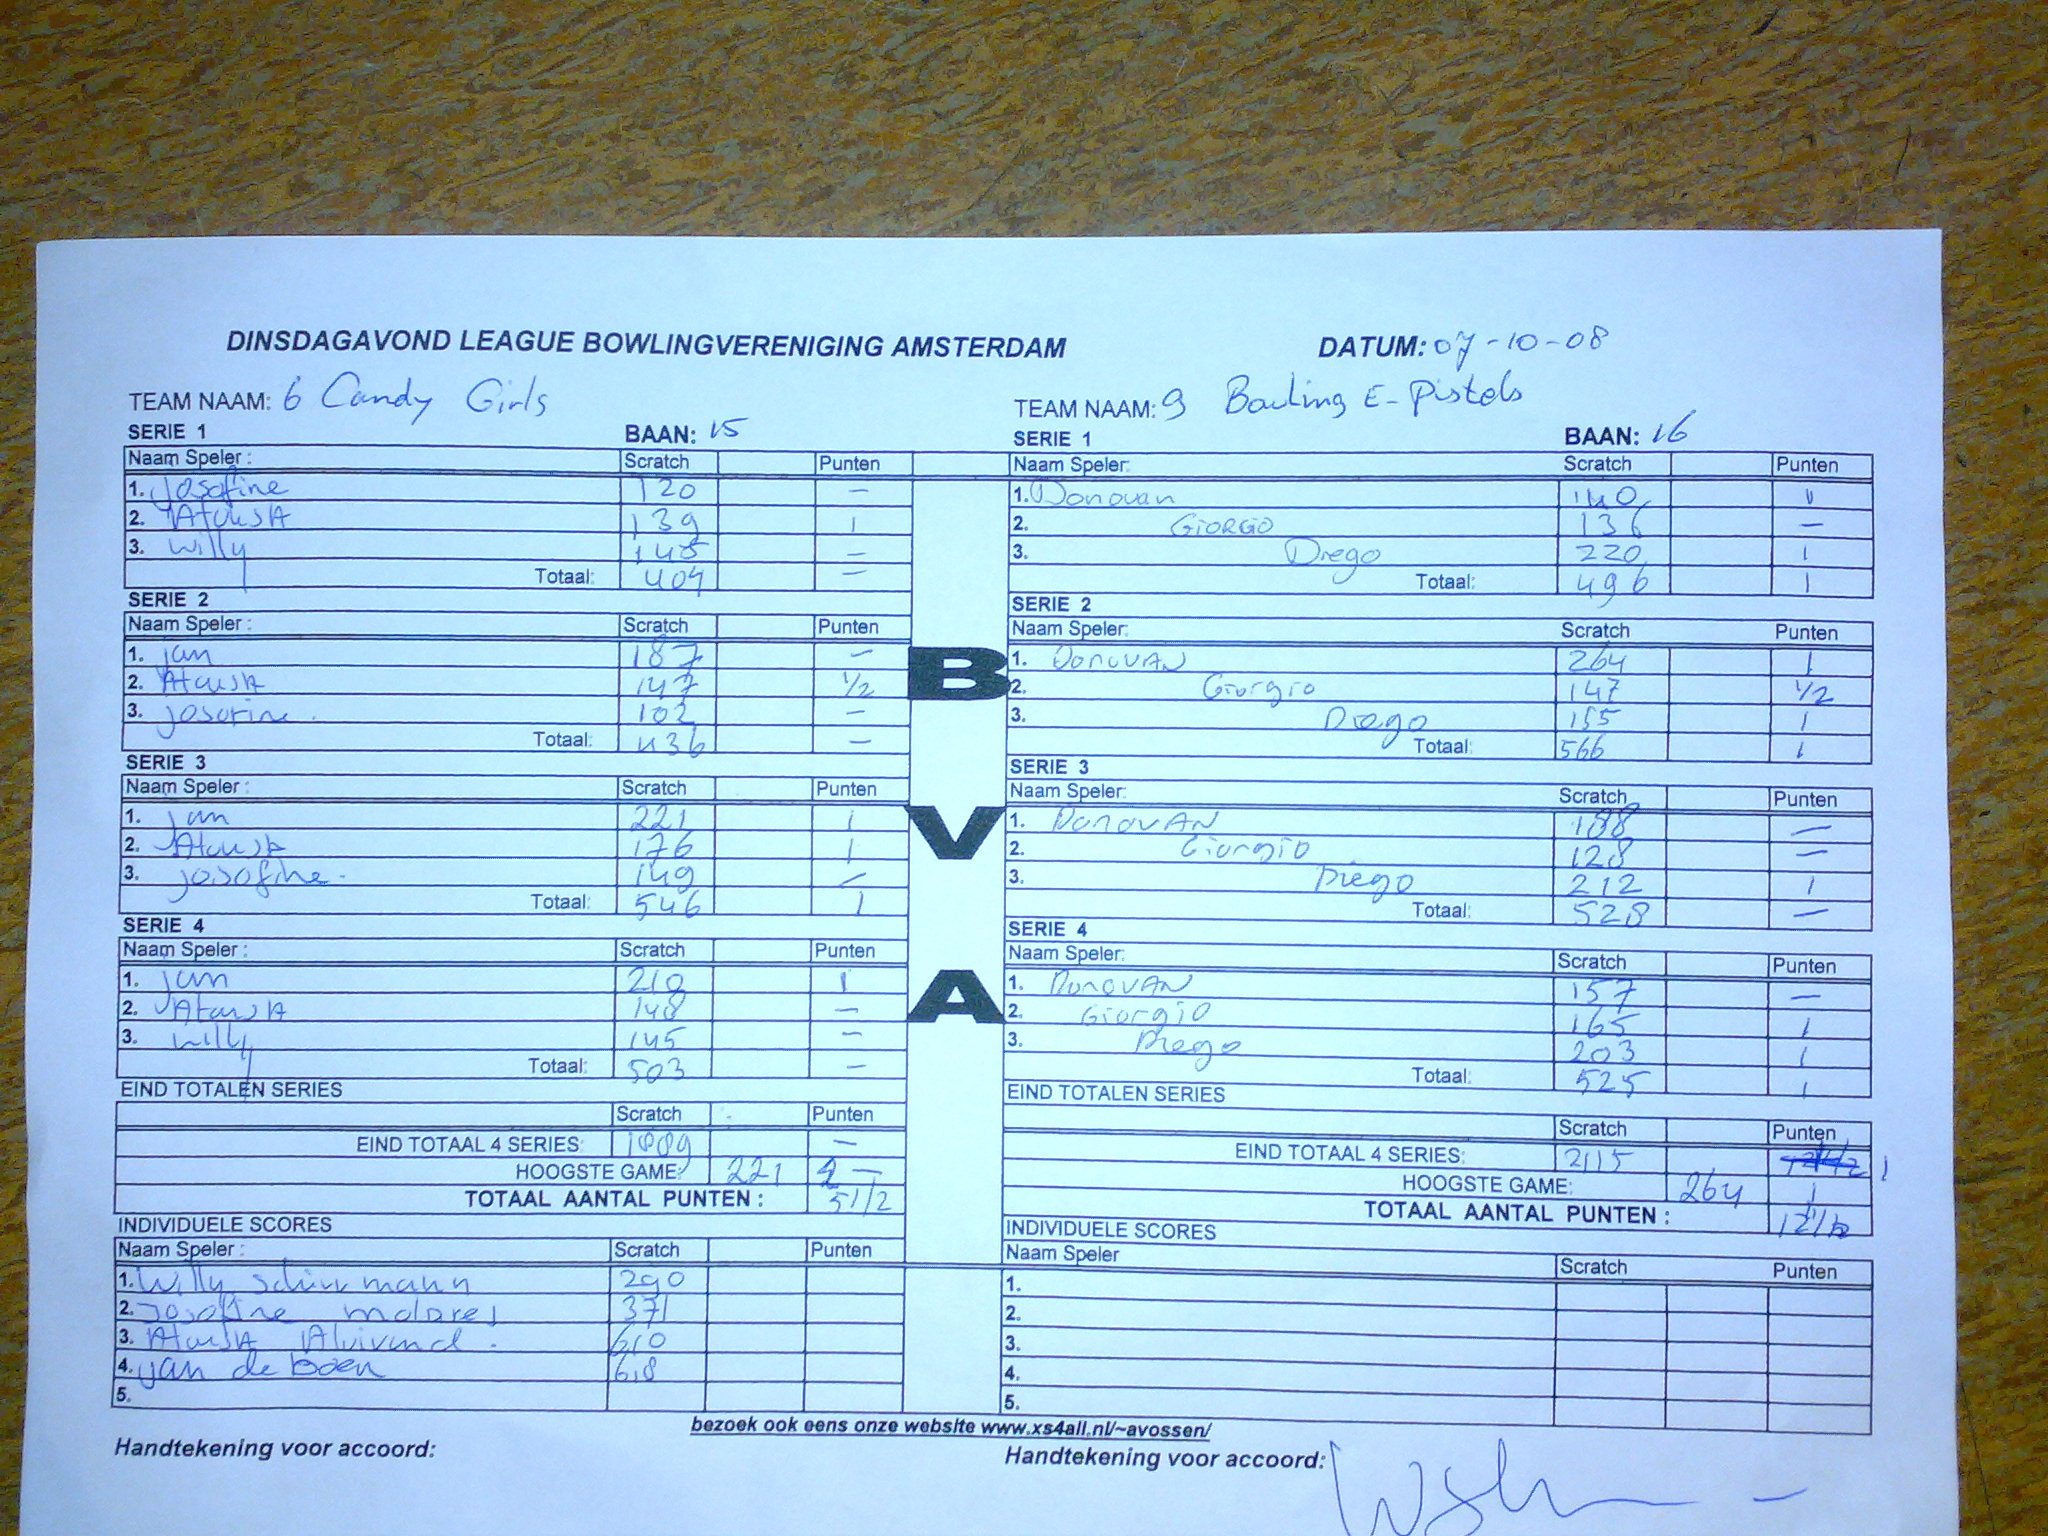 DINSDAGAVOND LEAGUE BOWLINGVERENIGING AMSTERDAM DATUM: 07-10-08
TEAM NAAM: 6 Candy Girls
SERIE 1 BAAN: 15
Naam Speler : Scratch Punten
1. Josofine 120 –
2. AtousA 139 1
3. Willy 145 –
Totaal: 404 –
SERIE 2
Naam Speler : Scratch Punten
1. jan 187 –
2. AtousA 147 1/2
3. josofine. 102 –
Totaal: 436 –
SERIE 3
Naam Speler : Scratch Punten
1. jan 221 1
2. AtousA 176 1
3. josofine. 149 –
Totaal: 546 1
SERIE 4
Naam Speler : Scratch Punten
1. jan 210 1
2. AtousA 148 –
3. Willy 145 –
Totaal: 503 –
EIND TOTALEN SERIES
Scratch Punten
EIND TOTAAL 4 SERIES: 1889 –
HOOGSTE GAME: 221 –
TOTAAL AANTAL PUNTEN : 5 1/2
INDIVIDUELE SCORES
Naam Speler : Scratch Punten
1. Willy 290
2. Josofine 371
3. AtousA 610
4. jan de boer 618
5.
Handtekening voor accoord:
B
V
A
TEAM NAAM: 9 Bowling E-Pistols
SERIE 1 BAAN: 16
Naam Speler: Scratch Punten
1. Donovan 140 1
2. GiORGiO 136 –
3. Diego 220 1
Totaal: 496 1
SERIE 2
Naam Speler: Scratch Punten
1. DonoVAN 264 1
2. Giorgio 147 1/2
3. Diego 155 1
Totaal: 566 1
SERIE 3
Naam Speler: Scratch Punten
1. DonoVAN 188 –
2. Giorgio 128 –
3. Diego 212 1
Totaal: 528 –
SERIE 4
Naam Speler: Scratch Punten
1. DonoVAN 157 –
2. Giorgio 165 1
3. Diego 203 1
Totaal: 525 1
EIND TOTALEN SERIES
Scratch Punten
EIND TOTAAL 4 SERIES: 2115 1
HOOGSTE GAME: 264 1
TOTAAL AANTAL PUNTEN : 12 1/2
INDIVIDUELE SCORES
Naam Speler Scratch Punten
1.
2.
3.
4.
5.
bezoek ook eens onze website www.xs4all.nl/~avossen/
Handtekening voor accoord: